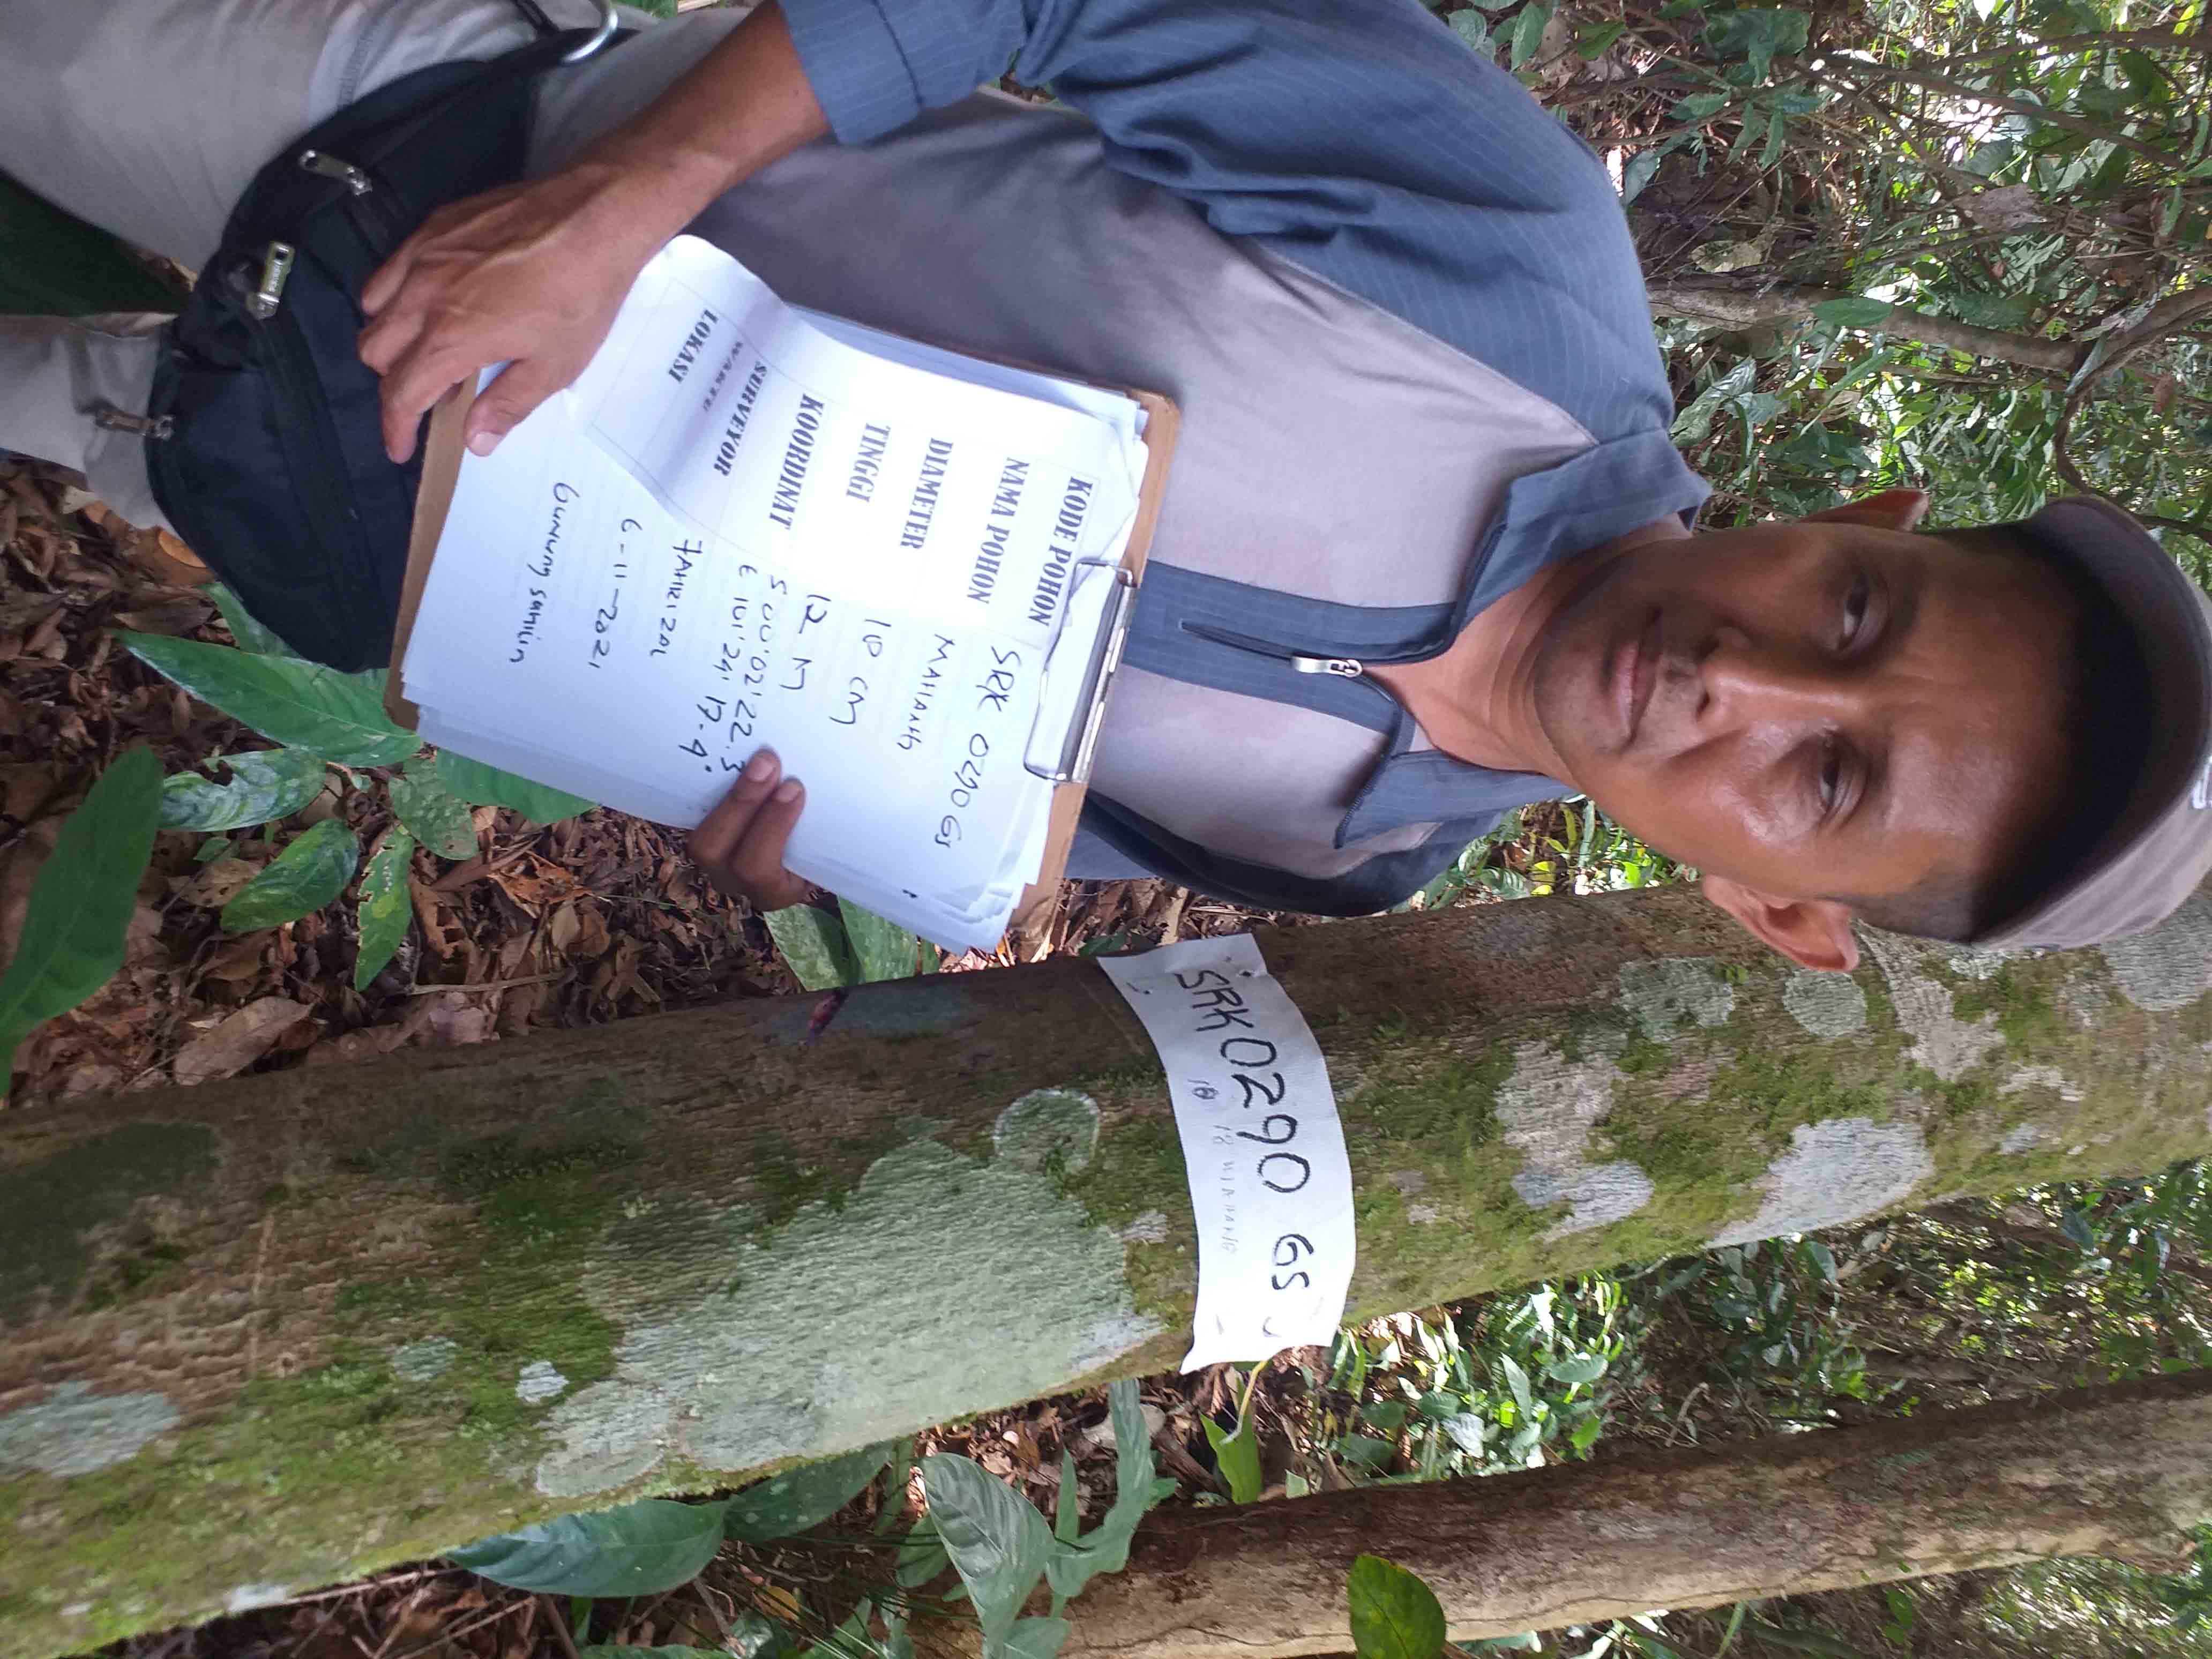 KODE POHON SRK 0290 GS
NAMA POHON MAHANG
DIAMETER 10 CM
TINGGI 12 M
KOORDINAT S 00°02'22.3
E 101°24'17.4"
SURVEYOR FAHRIZAL
WAKTU 6-11-2021
LOKASI Gunung sahilin
SRK0290 GS